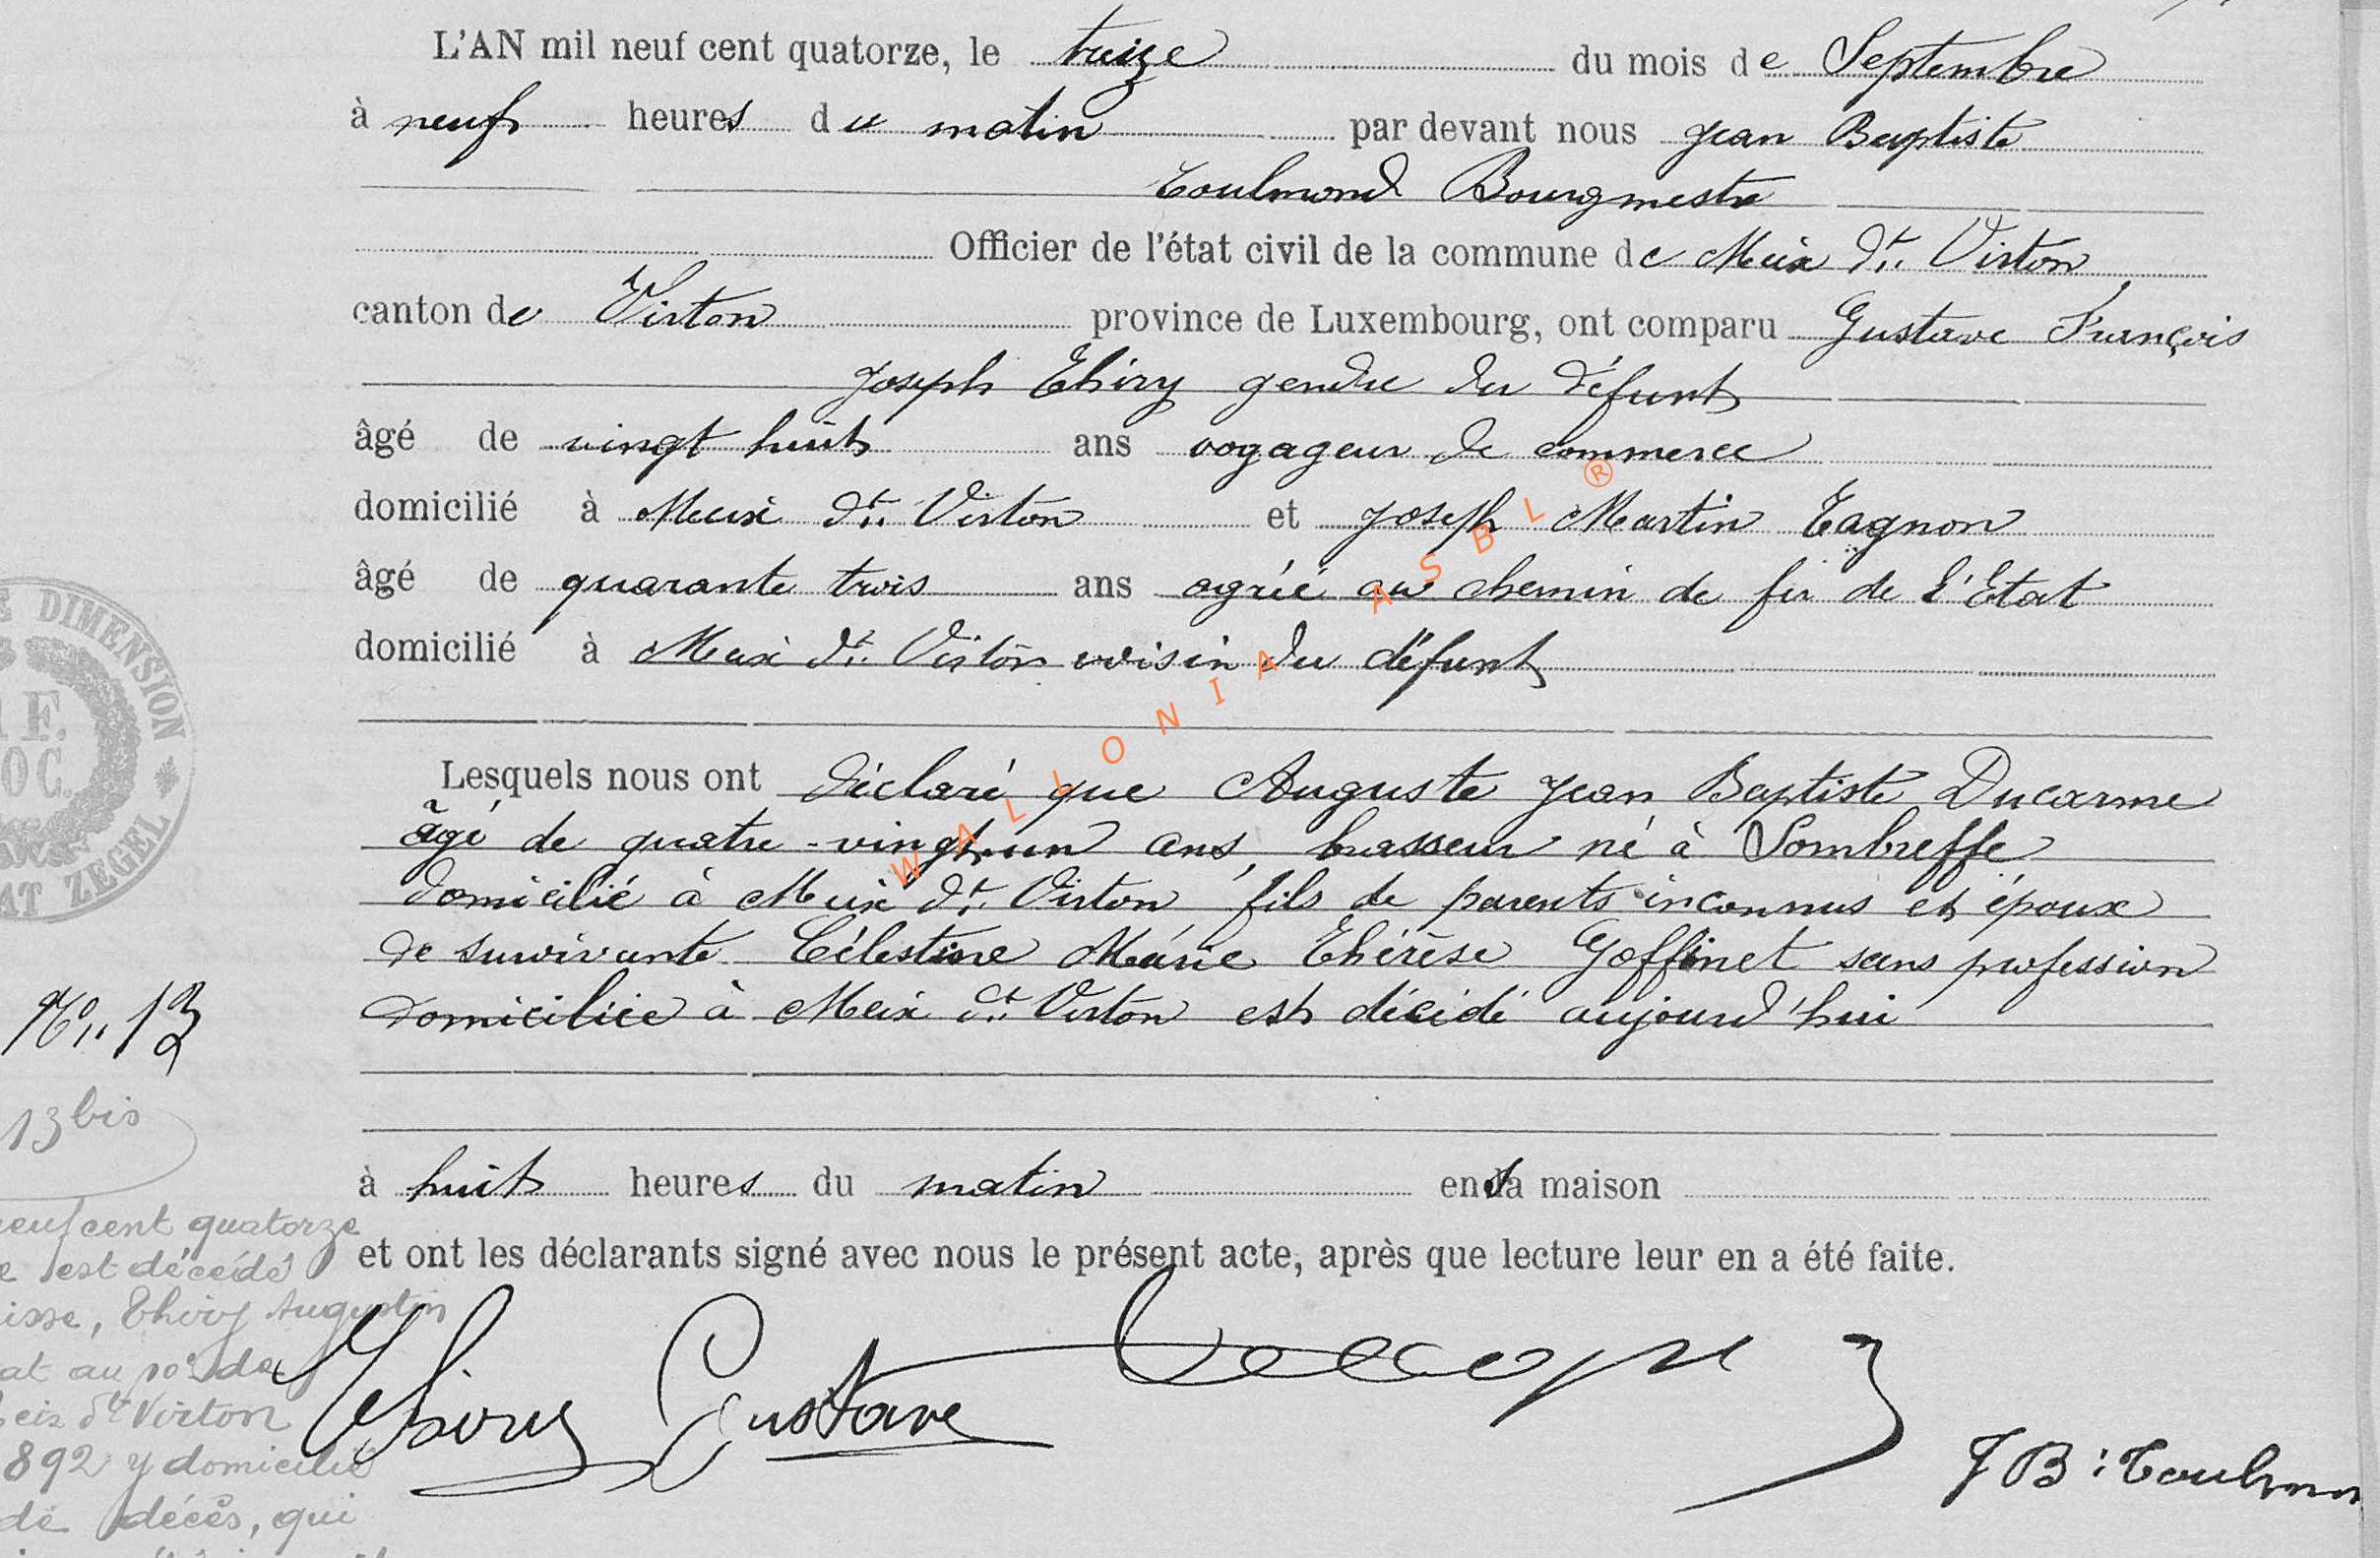 L'AN mil neuf cent quatorze, le treize du mois de Septembre
à neuf heures du matin par devant nous Jean Baptiste
Toulmond Bourgmestre
Officier de l'état civil de la commune de Meix dt. Virton
canton de Virton province de Luxembourg, ont comparu Gustave François
Joseph Thiry gendre du défunt
âgé de vingt huit ans voyageur de commerce
domicilié à Meix dt. Virton et Joseph Martin Tagnon
âgé de quarante trois ans agréé au chemin de fer de l'Etat
domicilié à Meix dt. Virton voisin du défunt
Lesquels nous ont déclaré que Auguste Jean Baptiste Ducarme
âgé de quatre-vingt-un ans, brasseur né à Sombreffe
domicilié à Meix dt. Virton fils de parents inconnus et époux
de survivante Célestine Marie Thérèse Goffinet sans profession
domiciliée à Meix dt. Virton est décédé aujourd'hui
No. 13
13 bis
à huit heures du matin en sa maison
et ont les déclarants signé avec nous le présent acte, après que lecture leur en a été faite.
Thiry Gustave
J B : Toulmon
neuf cent quatorze
est décédé
isse, Thiry Augustin
at au 10e de
Meix dt Virton
892 y domicilié
de décès, qui
DIMENSION
1 F.
OC.
AT ZEGEL
WALLONIA ASBL ®